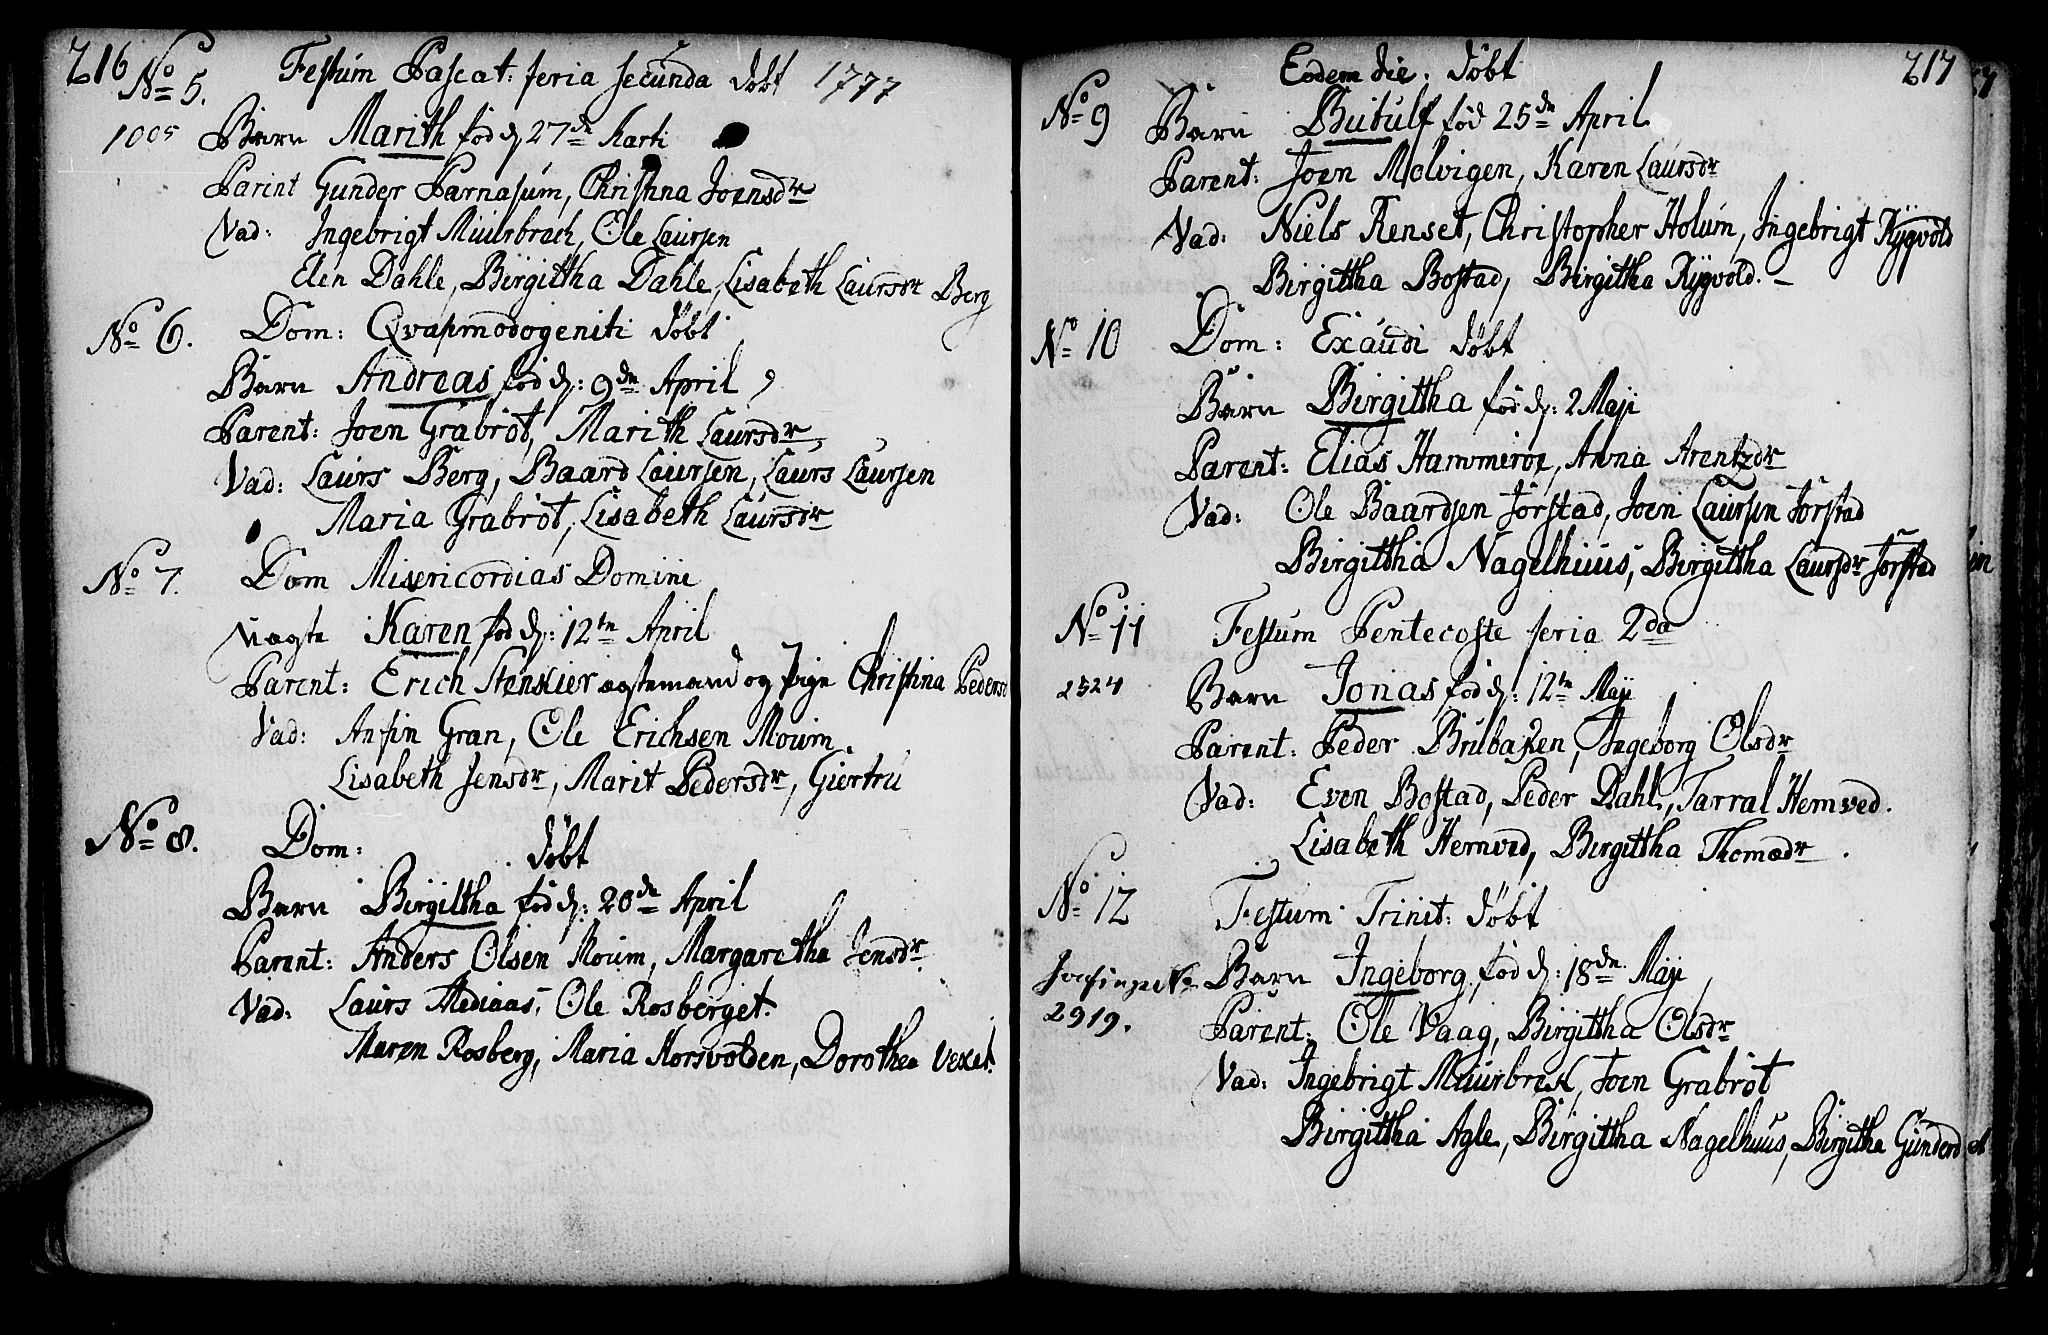 216
No 5. Festum Pascat: feria secunda døbt 1777
1005 Barn Marith fød d. 27de Marti
Parent Gunder Parnasum, Christina Joensdr
Vad: Ingebrigt Muurbræk, Ole Laursen
Elen Dahle, Birgittha Dahle, Lisabeth Laursdr Berg
No 6. Dom: Qvasimodogeniti døbt
Barn Andreas fød d: 9de April
Parent: Joen Grabrøt, Marith Laursdr
Vad: Laurs Berg, Baard Laursen, Laurs Laursen
Maria Grabrøt, Lisabeth Laursdr
No 7. Dom Misericordias Domini
Uægte Karen fød d: 12te April
Parent: Erich Stenkier ægtemand og pige Christina Pedersd
Vad: Anfin Gran, Ole Erichsen Moum,
Lisabeth Jensdr, Marit Pedersdr, Giertru
No 8. Dom: døbt
Barn Birgittha fød d: 20de April
Parent: Anders Olsen Moum, Margaretha Jensdr
Vad: Laurs Mediaas, Ole Rosberget.
Maren Rosberg, Maria Horsvolden, Dorothea Vexet.
217
Eodem die. døbt
No 9 Barn Butulf fød 25de April
Parent: Joen Molvigen, Karen Laursdr
Vad: Niels Renset, Christopher Holum, Ingebrigt Rygvold
Birgittha Bostad, Birgittha Rygvold. -
No 10 Dom: Exaudi døbt
Barn Birgittha fød d: 2 Maji
Parent: Elias Hammerøe, Anna Arentzdr
Vad: Ole Baardsen Jørstad, Joen Laursen Jørstad
Birgittha Nagelhuus, Birgittha Laursdr Jørstad
No 11 Festum Pentecoste feria 2da
2524 Barn Jonas fød d: 12te Maji
Parent: Peder Brubaken, Ingeborg Olsdr
Vad: Even Bostad, Peder Dahl, Tarral Hemved.
Lisabeth Hemved, Birgittha Thomædr.
No 12 Festum Trinit: døbt
Barn Ingeborg, fød d: 18de Maji
2919. Parent: Ole Vaag, Birgittha Olsdr
Vad: Ingebrigt Muurbrek, Joen Grabrøt
Birgittha Agle, Birgittha Nagelhuus, Birgitha Gunderd